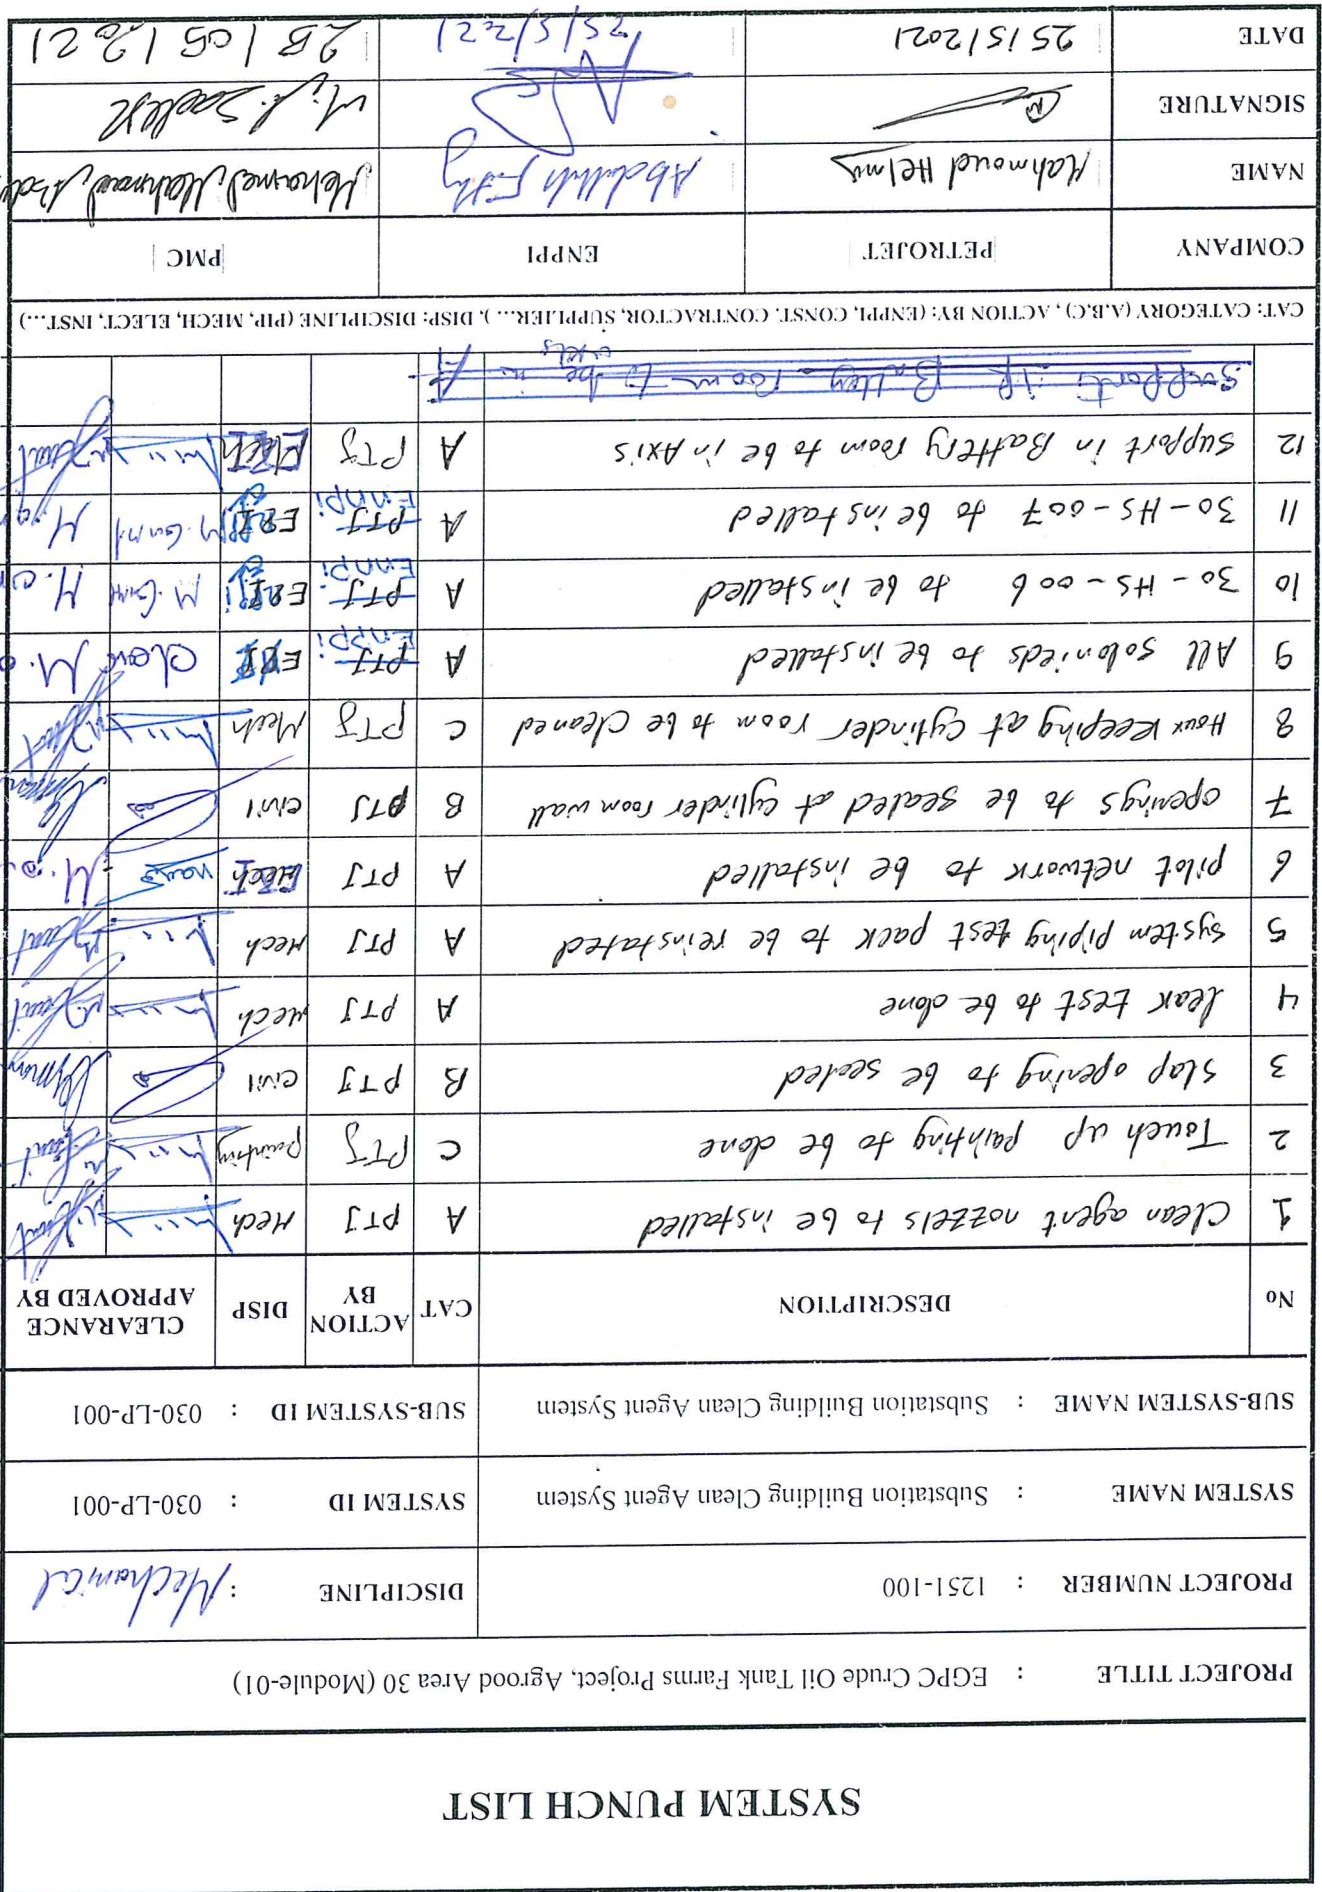 SYSTEM PUNCH LIST
PROJECT TITLE : EGPC Crude Oil Tank Farms Project, Agrood Area 30 (Module-01)
PROJECT NUMBER : 1251-100 DISCIPLINE : Mechanical
SYSTEM NAME : Substation Building Clean Agent System SYSTEM ID : 030-LP-001
SUB-SYSTEM NAME : Substation Building Clean Agent System SUB-SYSTEM ID : 030-LP-001
No DESCRIPTION CAT ACTION BY DISP CLEARANCE APPROVED BY
1 Clean agent nozzels to be installed A PTJ Mech
2 Touch up painting to be done C PTJ Painting
3 Slap opening to be sealed B PTJ civil
4 leak test to be done A PTJ Mech
5 system piping test pack to be reinstated A PTJ Mech
6 pilot network to be installed A PTJ
7 openings to be sealed at cylinder room wall B PTJ civil
8 House keeping at cylinder room to be cleaned C PTJ Mech
9 All solonieds to be installed A PTJ Enppi
10 30-HS-006 to be installed A PTJ Enppi
11 30-HS-007 to be installed A PTJ Enppi
12 support in Battery room to be in Axis A PTJ
CAT: CATEGORY (A,B,C) , ACTION BY: (ENPPI, CONST. CONTRACTOR, SUPPLIER... ), DISP: DISCIPLINE (PIP, MECH, ELECT, INST...)
COMPANY PETROJET ENPPI PMC
NAME Mahmoud Helmy Abdullah Fathy Mohamed Mahmoud
SIGNATURE
DATE 25/5/2021 25/5/2021 25/05/2021